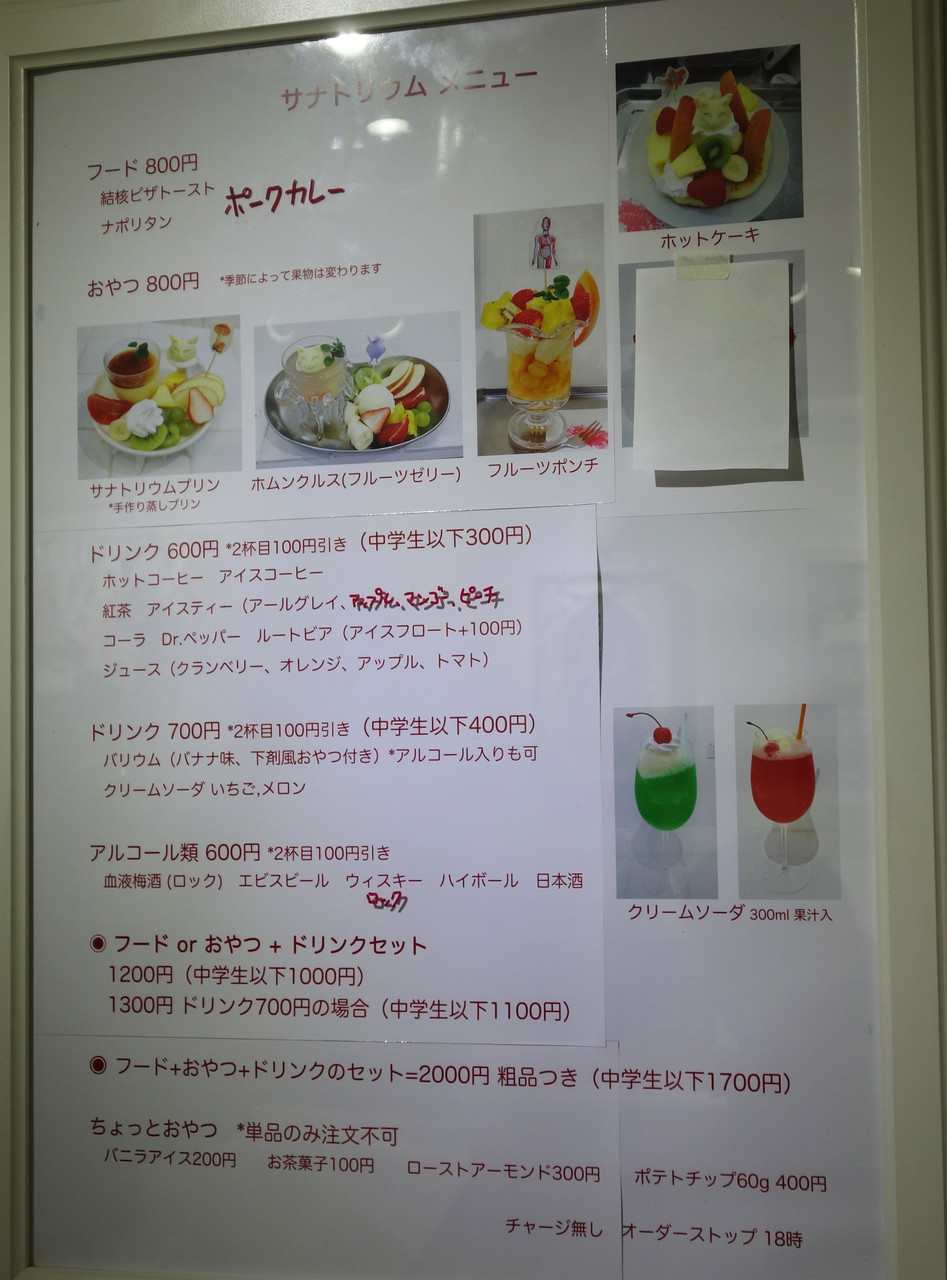 サナトリウム メニュー
フード 800円
結核ピザトースト
ナポリタン
ポークカレー
おやつ 800円 *季節によって果物は変わります
ホットケーキ
サナトリウムプリン
*手作り蒸しプリン
ホムンクルス(フルーツゼリー)
フルーツポンチ
ドリンク 600円 *2杯目100円引き（中学生以下300円）
ホットコーヒー　アイスコーヒー
紅茶　アイスティー（アールグレイ、アップル、マンゴー、ピーチ
コーラ　Dr.ペッパー　ルートビア（アイスフロート+100円）
ジュース（クランベリー、オレンジ、アップル、トマト）
ドリンク 700円 *2杯目100円引き（中学生以下400円）
バリウム（バナナ味、下剤風おやつ付き）*アルコール入りも可
クリームソーダ いちご,メロン
アルコール類 600円 *2杯目100円引き
血液梅酒 (ロック)　エビスビール　ウィスキー　ハイボール　日本酒
ロック
クリームソーダ 300ml 果汁入
◉ フード or おやつ + ドリンクセット
1200円（中学生以下1000円）
1300円 ドリンク700円の場合（中学生以下1100円）
◉ フード+おやつ+ドリンクのセット=2000円 粗品つき（中学生以下1700円）
ちょっとおやつ　*単品のみ注文不可
バニラアイス200円　お茶菓子100円　ローストアーモンド300円　ポテトチップ60g 400円
チャージ無し　オーダーストップ 18時